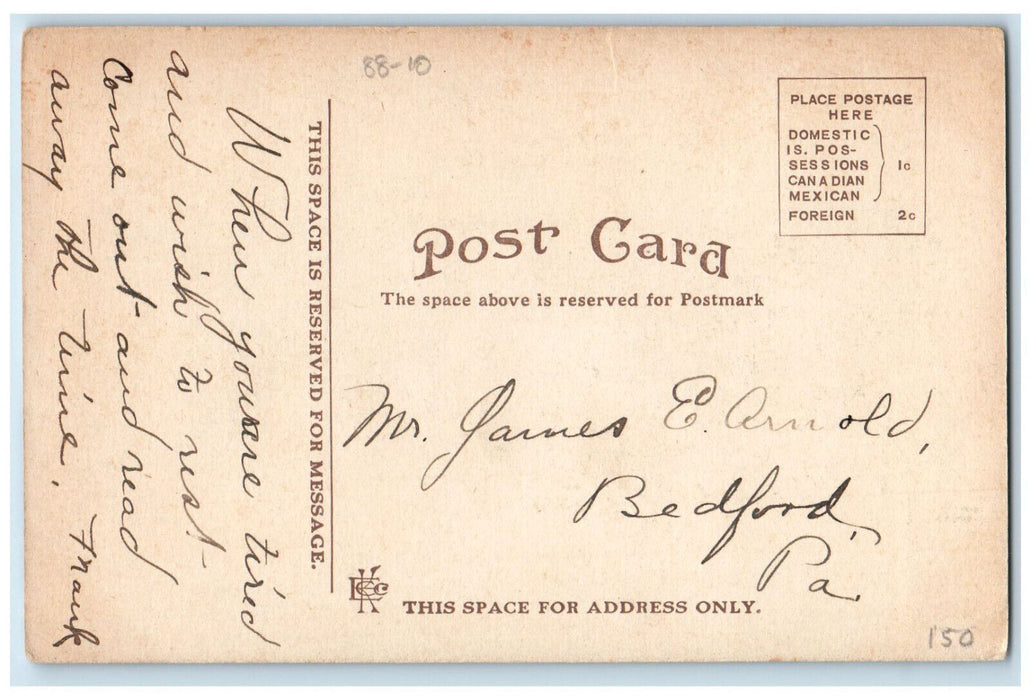 88-10
PLACE POSTAGE
HERE
DOMESTIC
IS. POS-
SESSIONS
CANADIAN
MEXICAN
1c
FOREIGN 2c
Post Card
The space above is reserved for Postmark
THIS SPACE IS RESERVED FOR MESSAGE.
When youre tired
and wish to rest
Come out and read
away the time.
Frank
Mr. James E. Arnold,
Bedford,
Pa.
THIS SPACE FOR ADDRESS ONLY.
150